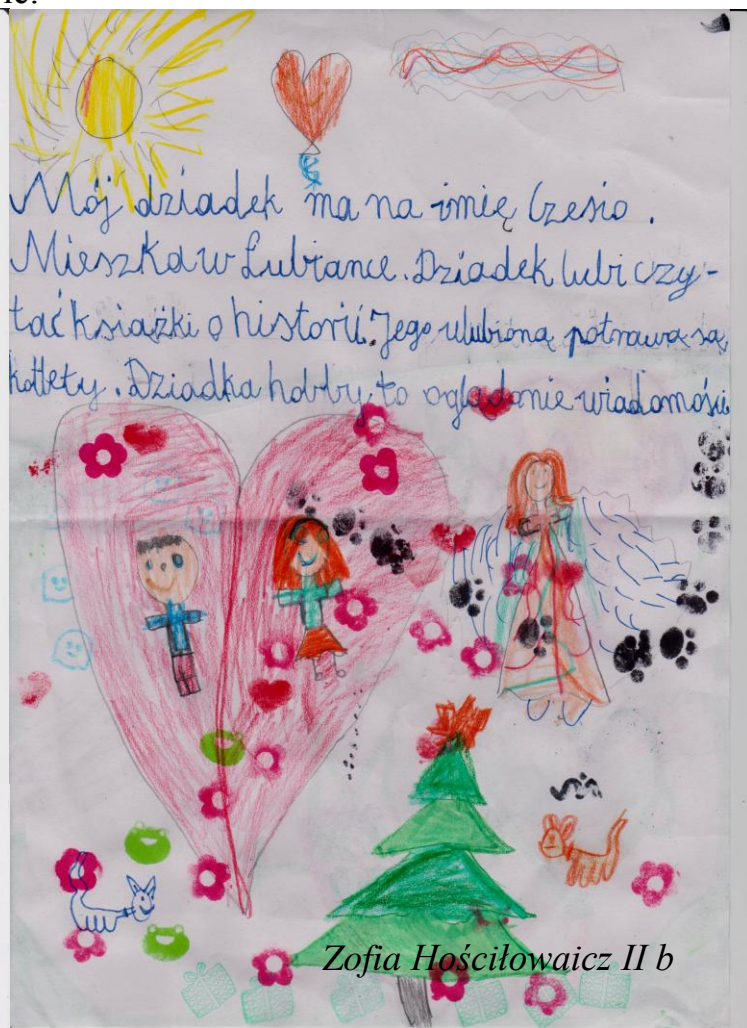 Mój dziadek ma na imię Czesio.
Mieszka w Lubiance. Dziadek lubi czy-
tać książki o historii. Jego ulubioną potrawą są
kotlety. Dziadka hobby to oglądanie wiadomości
Zofia Hościłowaicz II b